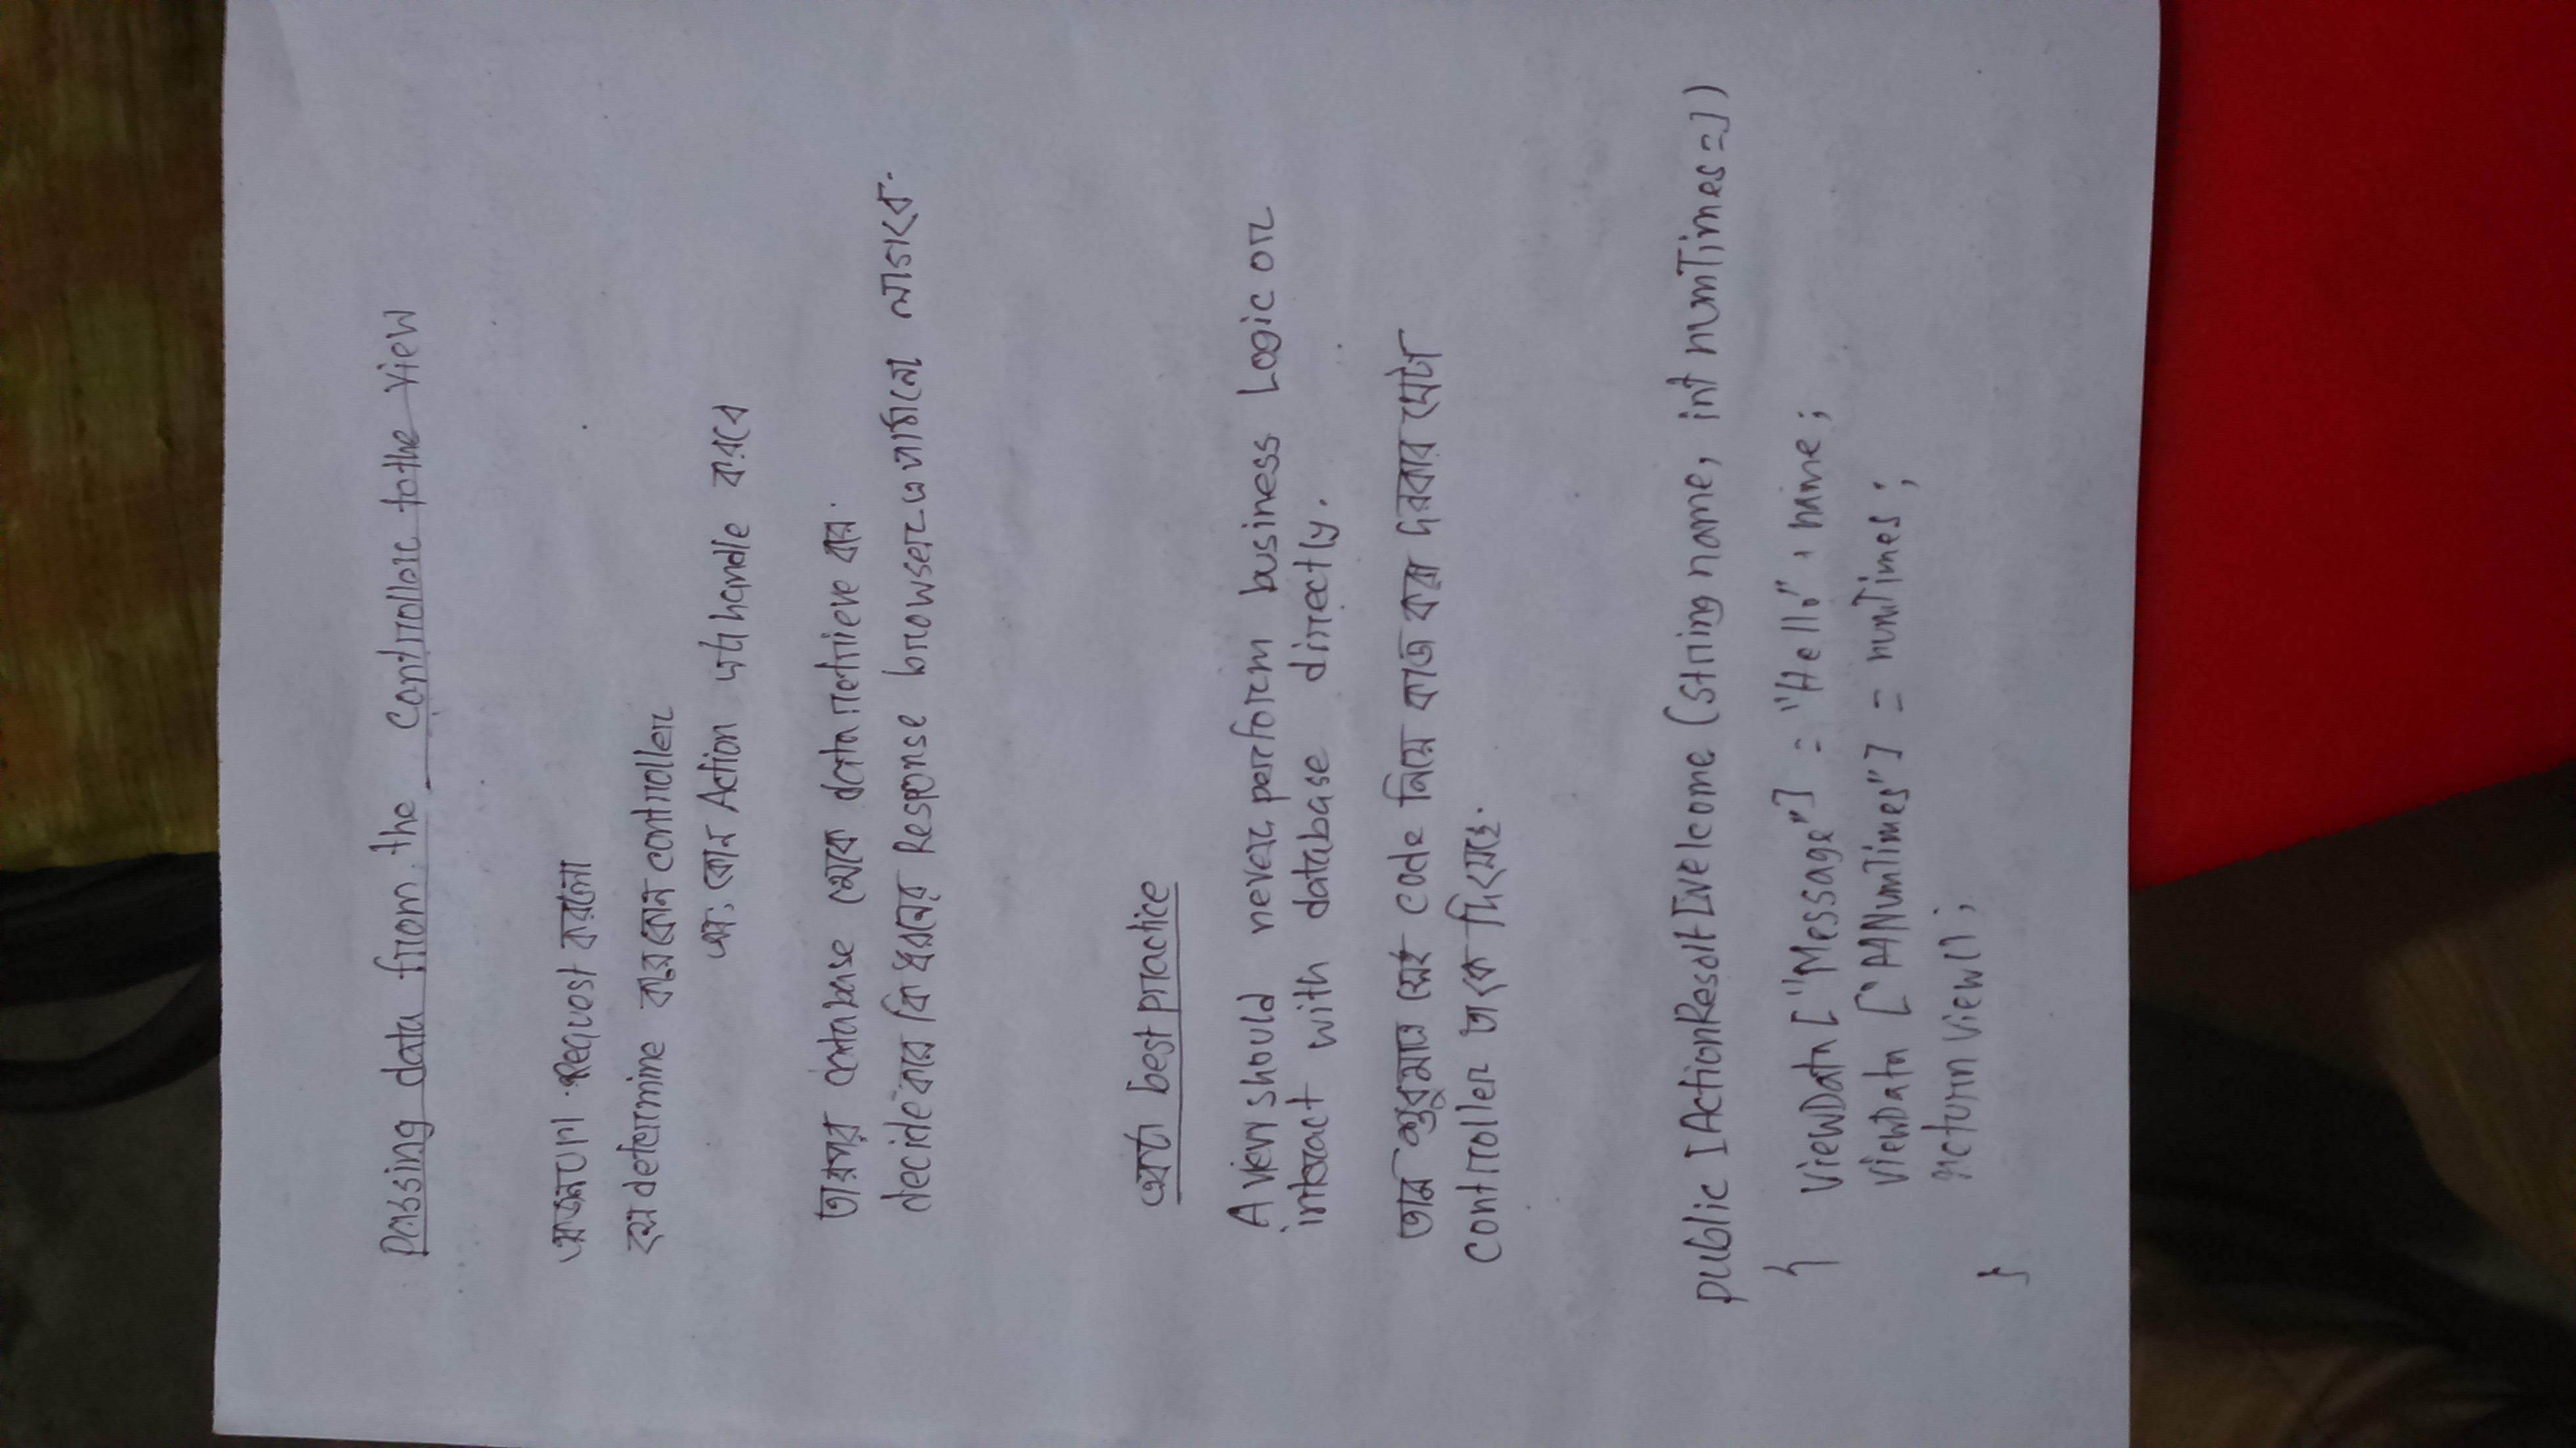 Passing data from the controller to the view
একজন url Request করলো
সে determine করে কোন controller
এবং কোন Action এটা handle করবে
তারপর database থেকে data retrieve করে.
decide করে কি ধরনের Response browser এ পাঠানো লাগবে.
একটা best practice
A view should never perform business Logic or
interact with database directly.
তার শুধুমাত্র সেই code নিয়ে কাজ করা দরকার যেটা
controller তাকে দিয়েছে.
public IActionResult Welcome (string name, int numTimes = 1)
{ ViewData ["Message"] = "Hello" + name;
ViewData ["NumTimes"] = numTimes;
return view();
}